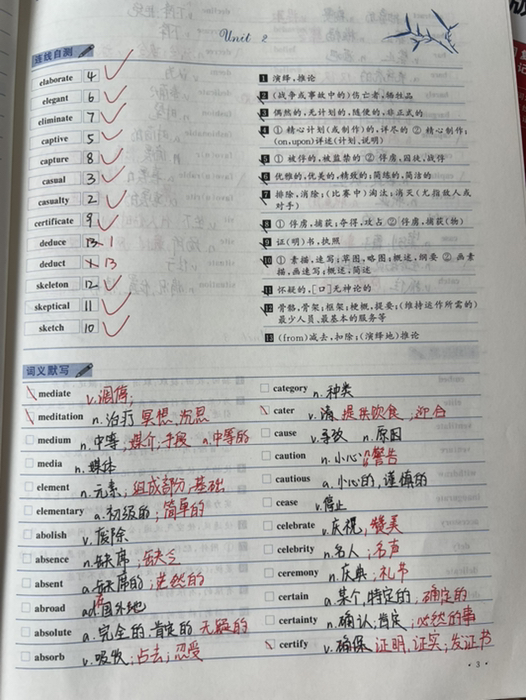 Unit 2
连线自测
elaborate 4
elegant 6
eliminate 7
captive 5
capture 8
casual 3
casualty 2
certificate 9
deduce 13 1
deduct 13
skeleton 12
skeptical 11
sketch 10
1 演绎,推论
2 (战争或事故中的)伤亡者,牺牲品
3 偶然的,无计划的,随便的,非正式的
4 ① 精心计划(或制作)的,详尽的 ② 精心制作;
(on,upon)详述(计划、说明)
5 ① 被俘的,被监禁的 ② 俘虏,囚徒,战俘
6 优雅的,优美的,精致的;简练的,简洁的
7 排除,消除;(比赛中)淘汰;消灭(尤指敌人或
对手)
8 ① 俘虏,捕获;夺得,攻占 ② 俘虏,捕获(物)
9 证(明)书,执照
10 ① 素描,速写;草图,略图;概述,纲要 ② 画素
描,画速写;概述,简述
11 怀疑的,[口]无神论的
12 骨骼,骨架;框架;梗概,提要;(维持运作所需的)
最少人员、最基本的服务等
13 (from)减去,扣除;(演绎地)推论
词义默写
mediate v.调停;
meditation n.治疗 冥想,沉思
medium n.中等;媒介;手段 a.中等的
media n.媒体
element n.元素;组成部分,基础
elementary a.初级的;简单的
abolish v.废除
absence n.缺席;缺乏
absent a.缺席的;茫然的
abroad ad.国外地
absolute a.完全的,肯定的 无疑的
absorb v.吸收;占去;忍受
category n.种类
cater v. 提供饮食;迎合
cause v.导致 n.原因
caution n.小心;警告
cautious a.小心的,谨慎的
cease v.停止
celebrate v.庆祝;赞美
celebrity n.名人;名声
ceremony n.庆典;礼节
certain a.某个,特定的,确定的
certainty n.确认;肯定;必然的事
certify v.确保 证明,证实;发证书
·3·